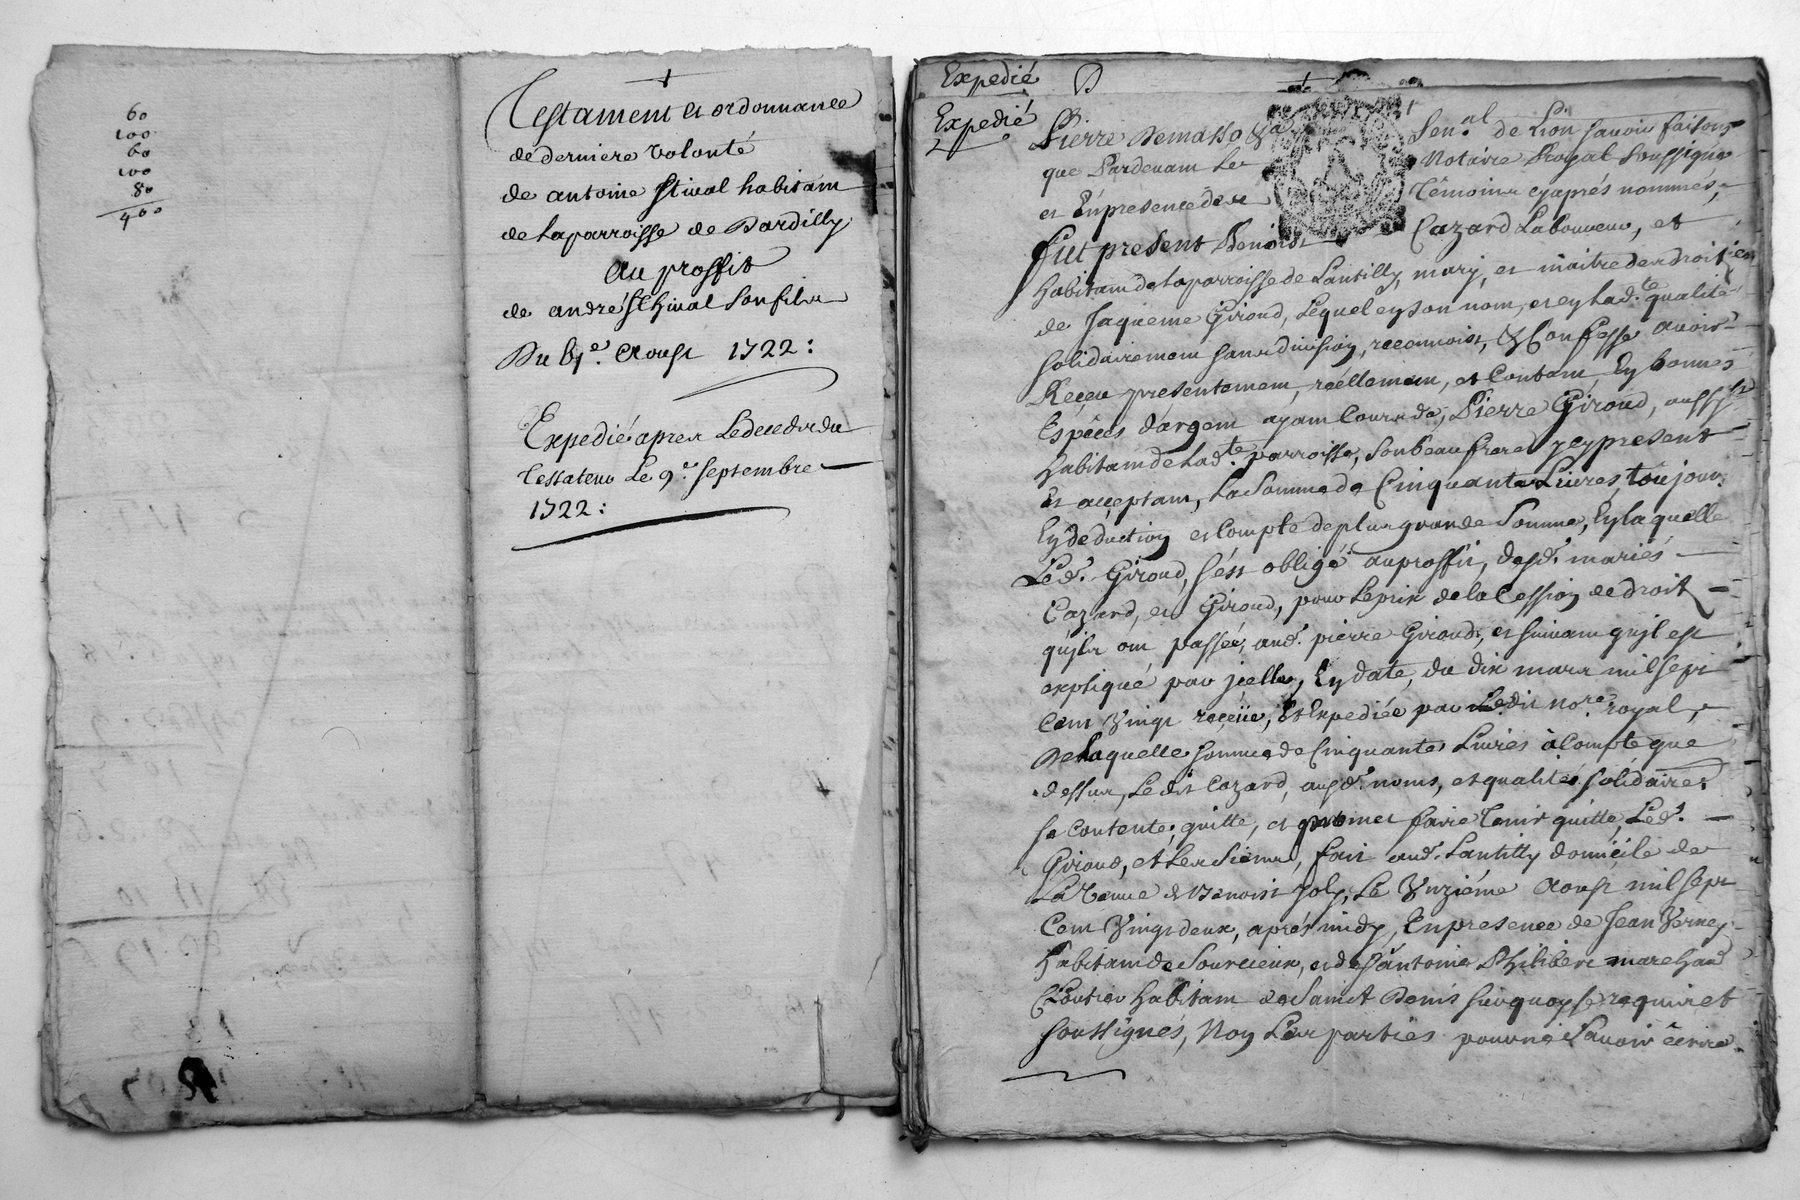 60
100
60
100
80
400
Testament et ordonnance
de derniere volonté
de antoine stival habitant
de la parroisse de Dardilly
au proffit
de andré sthival son filz
Du aoust 1722:
Expedié apres le deced du
testateur Le 9e. septembre
1722:
Expedié
Expedié
Pierre Demasso Senal. de Lion savoir faisons
que Pardevant Le Notaire Royal soussigné
et En presence des témoins cy aprés nommés,
fut present Benoist Cazard Laboureur, et
habitant de la parroisse de Lantilly, mary, et maitre des droits
de Jaqueme Giroud, Lequel ey son nom, et ey lad.te qualité
solidairement sans division, reconnoist, & Confesse avoir
Reçeu presentement, réellement, et Contant, Ey bonnes
Espéces d'argent ayant Cours de, Pierre Giroud, aussy
habitant de lad.te parroisse, son beaufrere ycy present
et acceptant, La Somme de Cinquante Livres, toujours
Ey deduction et Compte de plus grande Somme, Ey laquelle
Led. Giroud, s'est obligé au proffit, desd. mariés
Cazard, et Giroud, pour Le prix de la Cession de droit
qujls ont passée, aud. pierre Giroud, et suivant qujl est
expliqué par jcelle, Ey date, du dix mars mil sept
Cent Vingt reçeüe, et Expediée par Ledit no.re royal,
De Laquelle somme de Cinquante Livres à Compte que
dessus, Ledit Cazard, ausd. noms, et qualités solidaires
se Contente, quitte, et promet faire tenir quitte, Led.
Giroud, et Les Siens, fait aud. Lantilly domicile de
La Benoist Joly, Le Vnziéme Aoust mil sept
Cent Vingt deux, aprés midy, En presence de Jean Verney
habitant de Sourcieux, et de S. antoine Philibert marchand
habitant de Saint Denis
soussignés, Noy Les parties pour ne Savoir écrire.